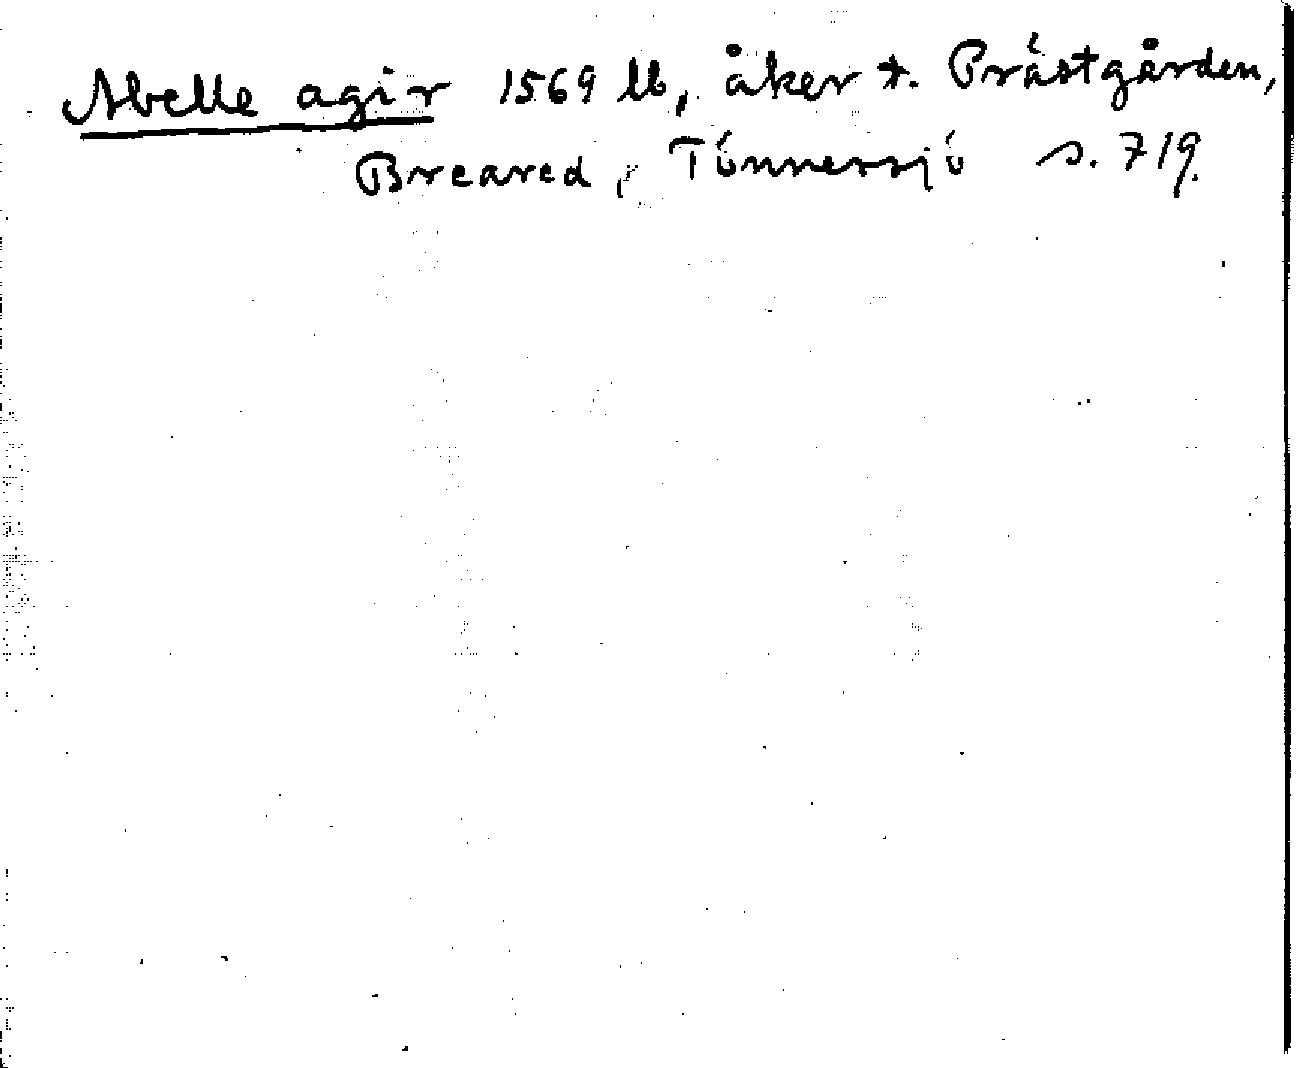 Abelle agir 1569 lb, åker t. Prästgården,
Breared, Tönnersjö s. 719.